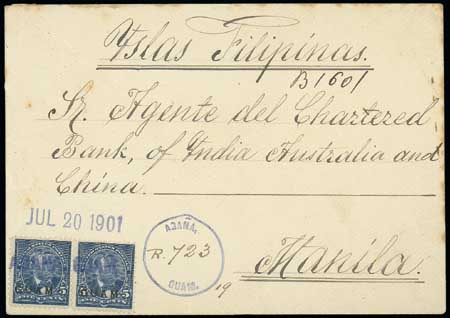 Yslas Filipinas.
B1601
Sr. Agente del Chartered
Bank, of India Australia and
China.
JUL 20 1901
AGAÑA,
R. 723
GUAM.
19
Manila.
5 5